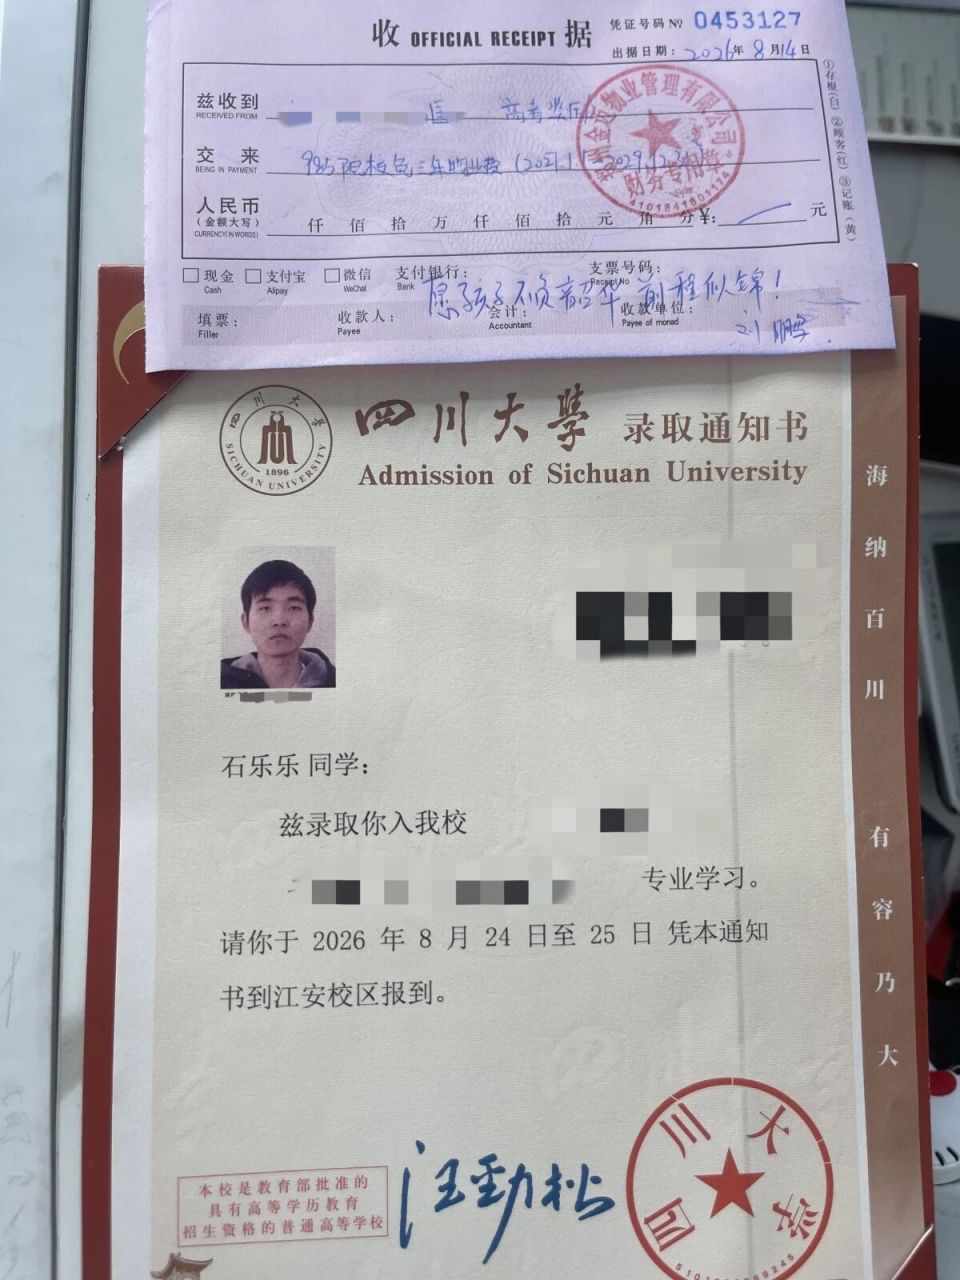 收 OFFICIAL RECEIPT 据
凭证号码 № 0453127
出据日期：2026年8月14日
兹收到
RECEIVED FROM
高考奖励
交来
BEING IN PAYMENT
985院校免三年物业费（2027.1.1-2029.12.31）
人民币
（金额大写）
CURRENCY(IN WORDS)
仟 佰 拾 万 仟 佰 拾 元 角 分 ¥： 元
物业管理有限公司
财务专用章
4101841801174
①存根（白） ②顾客（红） ③记账（黄）
现金 支付宝 微信 支付银行： 支票号码：
Cash Alipay WeChat Bank Receipt No
愿孩子不负韶华 前程似锦！
填票： 收款人： 会计： 收款单位：
Filler Payee Accountant Payee of monad
四川大学
SICHUAN UNIVERSITY
1896
四川大學 录取通知书
Admission of Sichuan University
海纳百川
有容乃大
石乐乐 同学：
兹录取你入我校
专业学习。
请你于 2026 年 8 月 24 日至 25 日 凭本通知
书到江安校区报到。
本校是教育部批准的
具有高等学历教育
招生资格的普通高等学校
汪劲松
四川大学